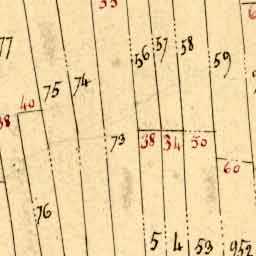 77
56
57
58
59
75
74
40
38
73
38 34 50
60
76
5 4 53 952